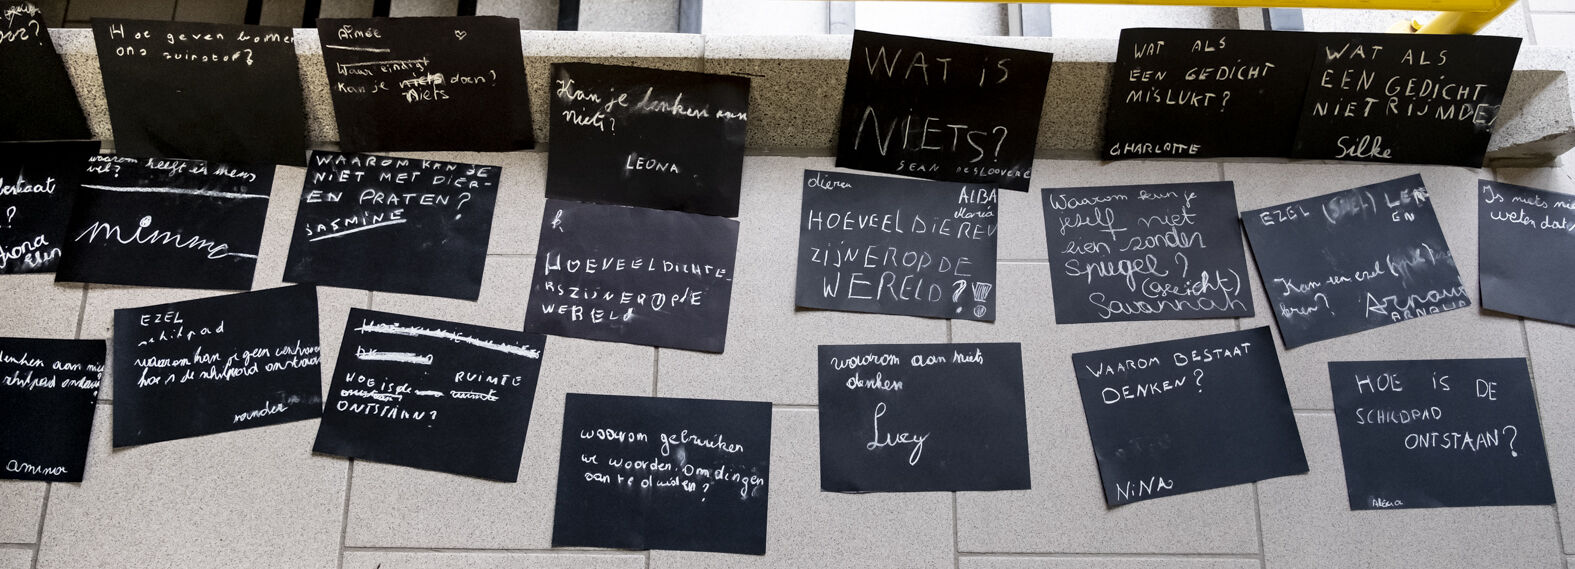 Hoe geven bomen
ons zuurstof?
Aimée
Waar eindigt
kan je niets doen?
Niets
Kan je denken aan
niets?
LEONA
WAT iS
NiETS?
SEAN DESLOOVERE
WAT ALS
EEN GEDICHT
MISLUKT?
CHARLOTTE
WAT ALS
EEN GEDICHT
NIET RIJMDE?
Silke
bestaat
?
fiona
waarom heeft een mens
mimma
WAAROM KAN JE
NIET MET DIER-
EN PRATEN?
JASMINE
h
HOEVEEL DICHTE-
RS ZIJN ER OP DE
WERELD
dieren
ALBA
Maria
HOEVEEL DIEREN
ZIJN ER OP DE
WERELD?!!!
Waarom kun je
jezelf niet
zien zonder
Spiegel?
(gezicht)
Savannah
EZEL (SNEL) LER
EN
Kan een ezel
Arnaud
ARNAUD
Is niets nie
weten dat
denken aan nie
schildpad
amina
EZEL
schildpad
waarom kan je geen
hoe is de schildpad ontstaan
xander
HOE is de RUIMTE
ruimte
ONTSTAAN?
waarom gebruiken
we woorden om dingen
aan te duiden?
waarom aan niets
denken
Lucy
WAAROM BESTAAT
DENKEN?
NiNA
HOE IS DE
SCHILDPAD
ONTSTAAN?